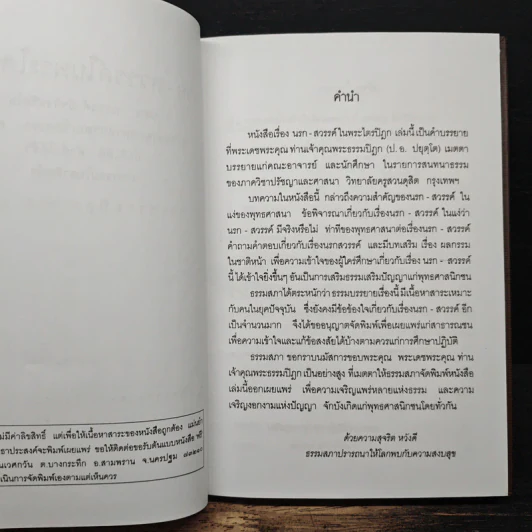 ไม่มีค่าลิขสิทธิ์ แต่เพื่อให้เนื้อหาสาระของหนังสือถูกต้อง
ประสงค์จะพิมพ์เผยแพร่ ขอให้ติดต่อขอรับต้นแบบหนังสือ
ต.บางกระทึก อ.สามพราน จ.นครปฐม
เนินการจัดพิมพ์เองตามแต่เห็นควร
คำนำ
หนังสือเรื่อง นรก - สวรรค์ ในพระไตรปิฎก เล่มนี้ เป็นคำบรรยาย
ที่พระเดชพระคุณ ท่านเจ้าคุณพระธรรมปิฎก (ป. อ. ปยุตฺโต) เมตตา
บรรยายแก่คณะอาจารย์ และนักศึกษา ในรายการสนทนาธรรม
ของภาควิชาปรัชญาและศาสนา วิทยาลัยครูสวนดุสิต กรุงเทพฯ
บทความในหนังสือนี้ กล่าวถึงความสำคัญของนรก - สวรรค์ ใน
แง่ของพุทธศาสนา ข้อพิจารณาเกี่ยวกับเรื่องนรก - สวรรค์ ในแง่ว่า
นรก - สวรรค์ มีจริงหรือไม่ ท่าทีของพุทธศาสนาต่อเรื่องนรก - สวรรค์
คำถามคำตอบเกี่ยวกับเรื่องนรกสวรรค์ และมีบทเสริม เรื่อง ผลกรรม
ในชาติหน้า เพื่อความเข้าใจของผู้ใคร่ศึกษาเกี่ยวกับเรื่อง นรก - สวรรค์
นี้ ได้เข้าใจยิ่งขึ้นๆ อันเป็นการเสริมธรรมเสริมปัญญาแก่พุทธศาสนิกชน
ธรรมสภาได้ตระหนักว่า ธรรมบรรยายเรื่องนี้ มีเนื้อหาสาระเหมาะ
กับคนในยุคปัจจุบัน ซึ่งยังคงมีข้อข้องใจเกี่ยวกับเรื่องนรก - สวรรค์ อีก
เป็นจำนวนมาก จึงได้ขออนุญาตจัดพิมพ์เพื่อเผยแพร่แก่สาธารณชน
เพื่อความเข้าใจและแก้ข้อสงสัยได้บ้างตามควรแก่การศึกษาปฏิบัติ
ธรรมสภา ขอกราบนมัสการขอบพระคุณ พระเดชพระคุณ ท่าน
เจ้าคุณพระธรรมปิฎก เป็นอย่างสูง ที่เมตตาให้ธรรมสภาจัดพิมพ์หนังสือ
เล่มนี้ออกเผยแพร่ เพื่อความเจริญแพร่หลายแห่งธรรม และความ
เจริญงอกงามแห่งปัญญา จักบังเกิดแก่พุทธศาสนิกชนโดยทั่วกัน
ด้วยความสุจริต หวังดี
ธรรมสภาปรารถนาให้โลกพบกับความสงบสุข